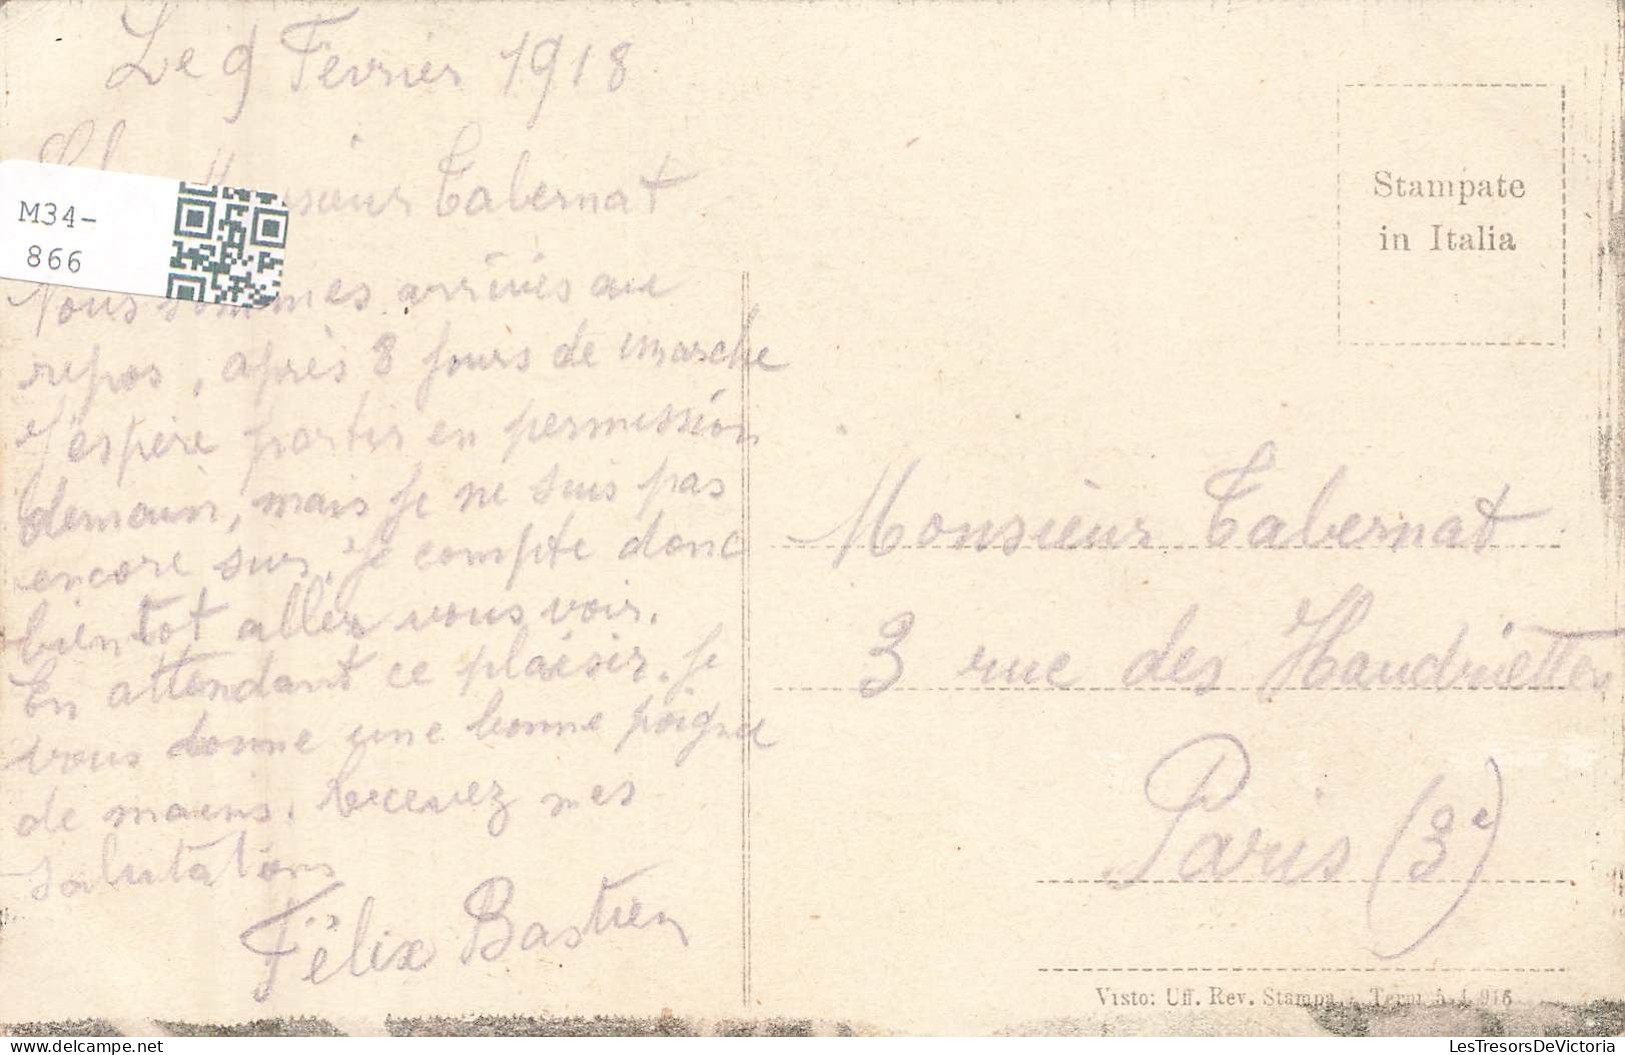 Le 9 Fevrier 1918
Monsieur Tabernat
M34-
866
Nous sommes arrivés au
repos, après 8 jours de marche
J'espère partir en permission
demain, mais je ne suis pas
encore sur. Je compte donc
bientot aller vous voir.
En attendant ce plaisir. je
vous donne une bonne poignee
de mains. Recevez mes
salutations
Félix Bastien
Stampate
in Italia
Monsieur Tabernat
3 rue des Haudriettes
Paris (3e)
Visto: Uff. Rev. Stampa. - Terni 5-1-916
LesTresorsDeVictoria